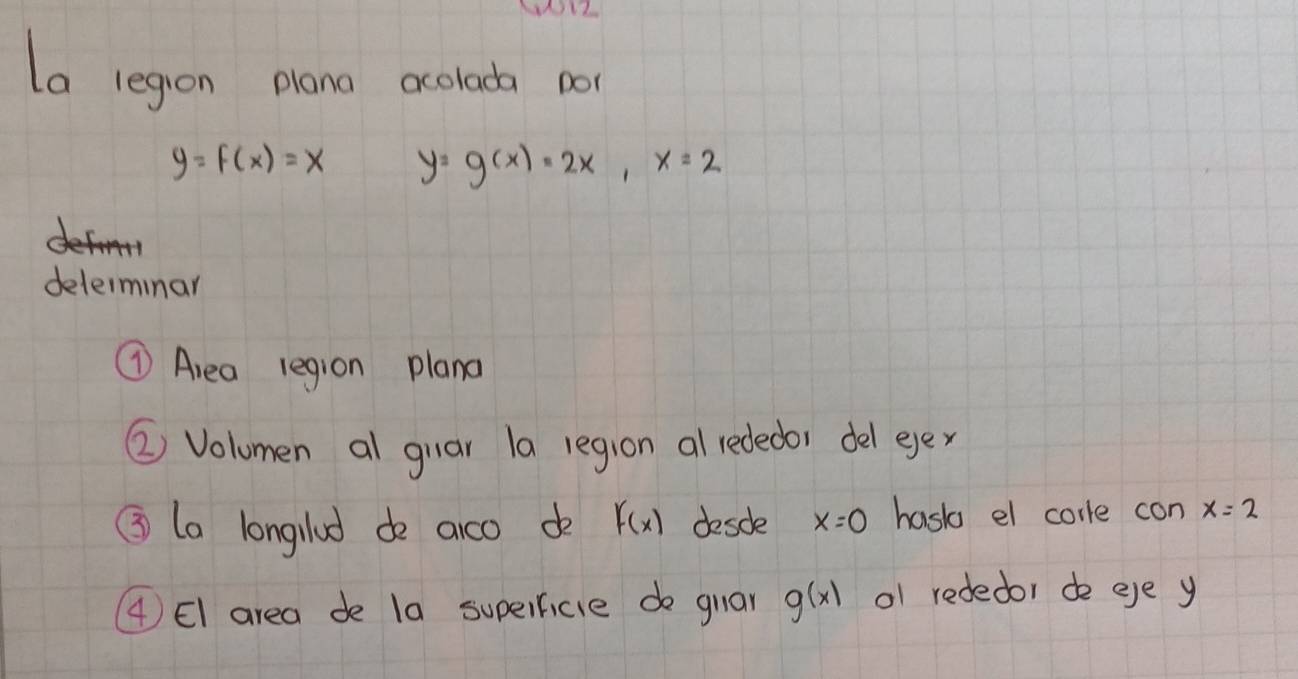 La region plana acolada por
y = f(x) = x y = g(x) = 2x , x = 2
determinar
① Area region plana
② Volumen al girar la region al rededor del eje x
③ La longitud de arco de f(x) desde x=0 hasta el corte con x=2
④ El area de la superficie de girar g(x) al rededor de eje y